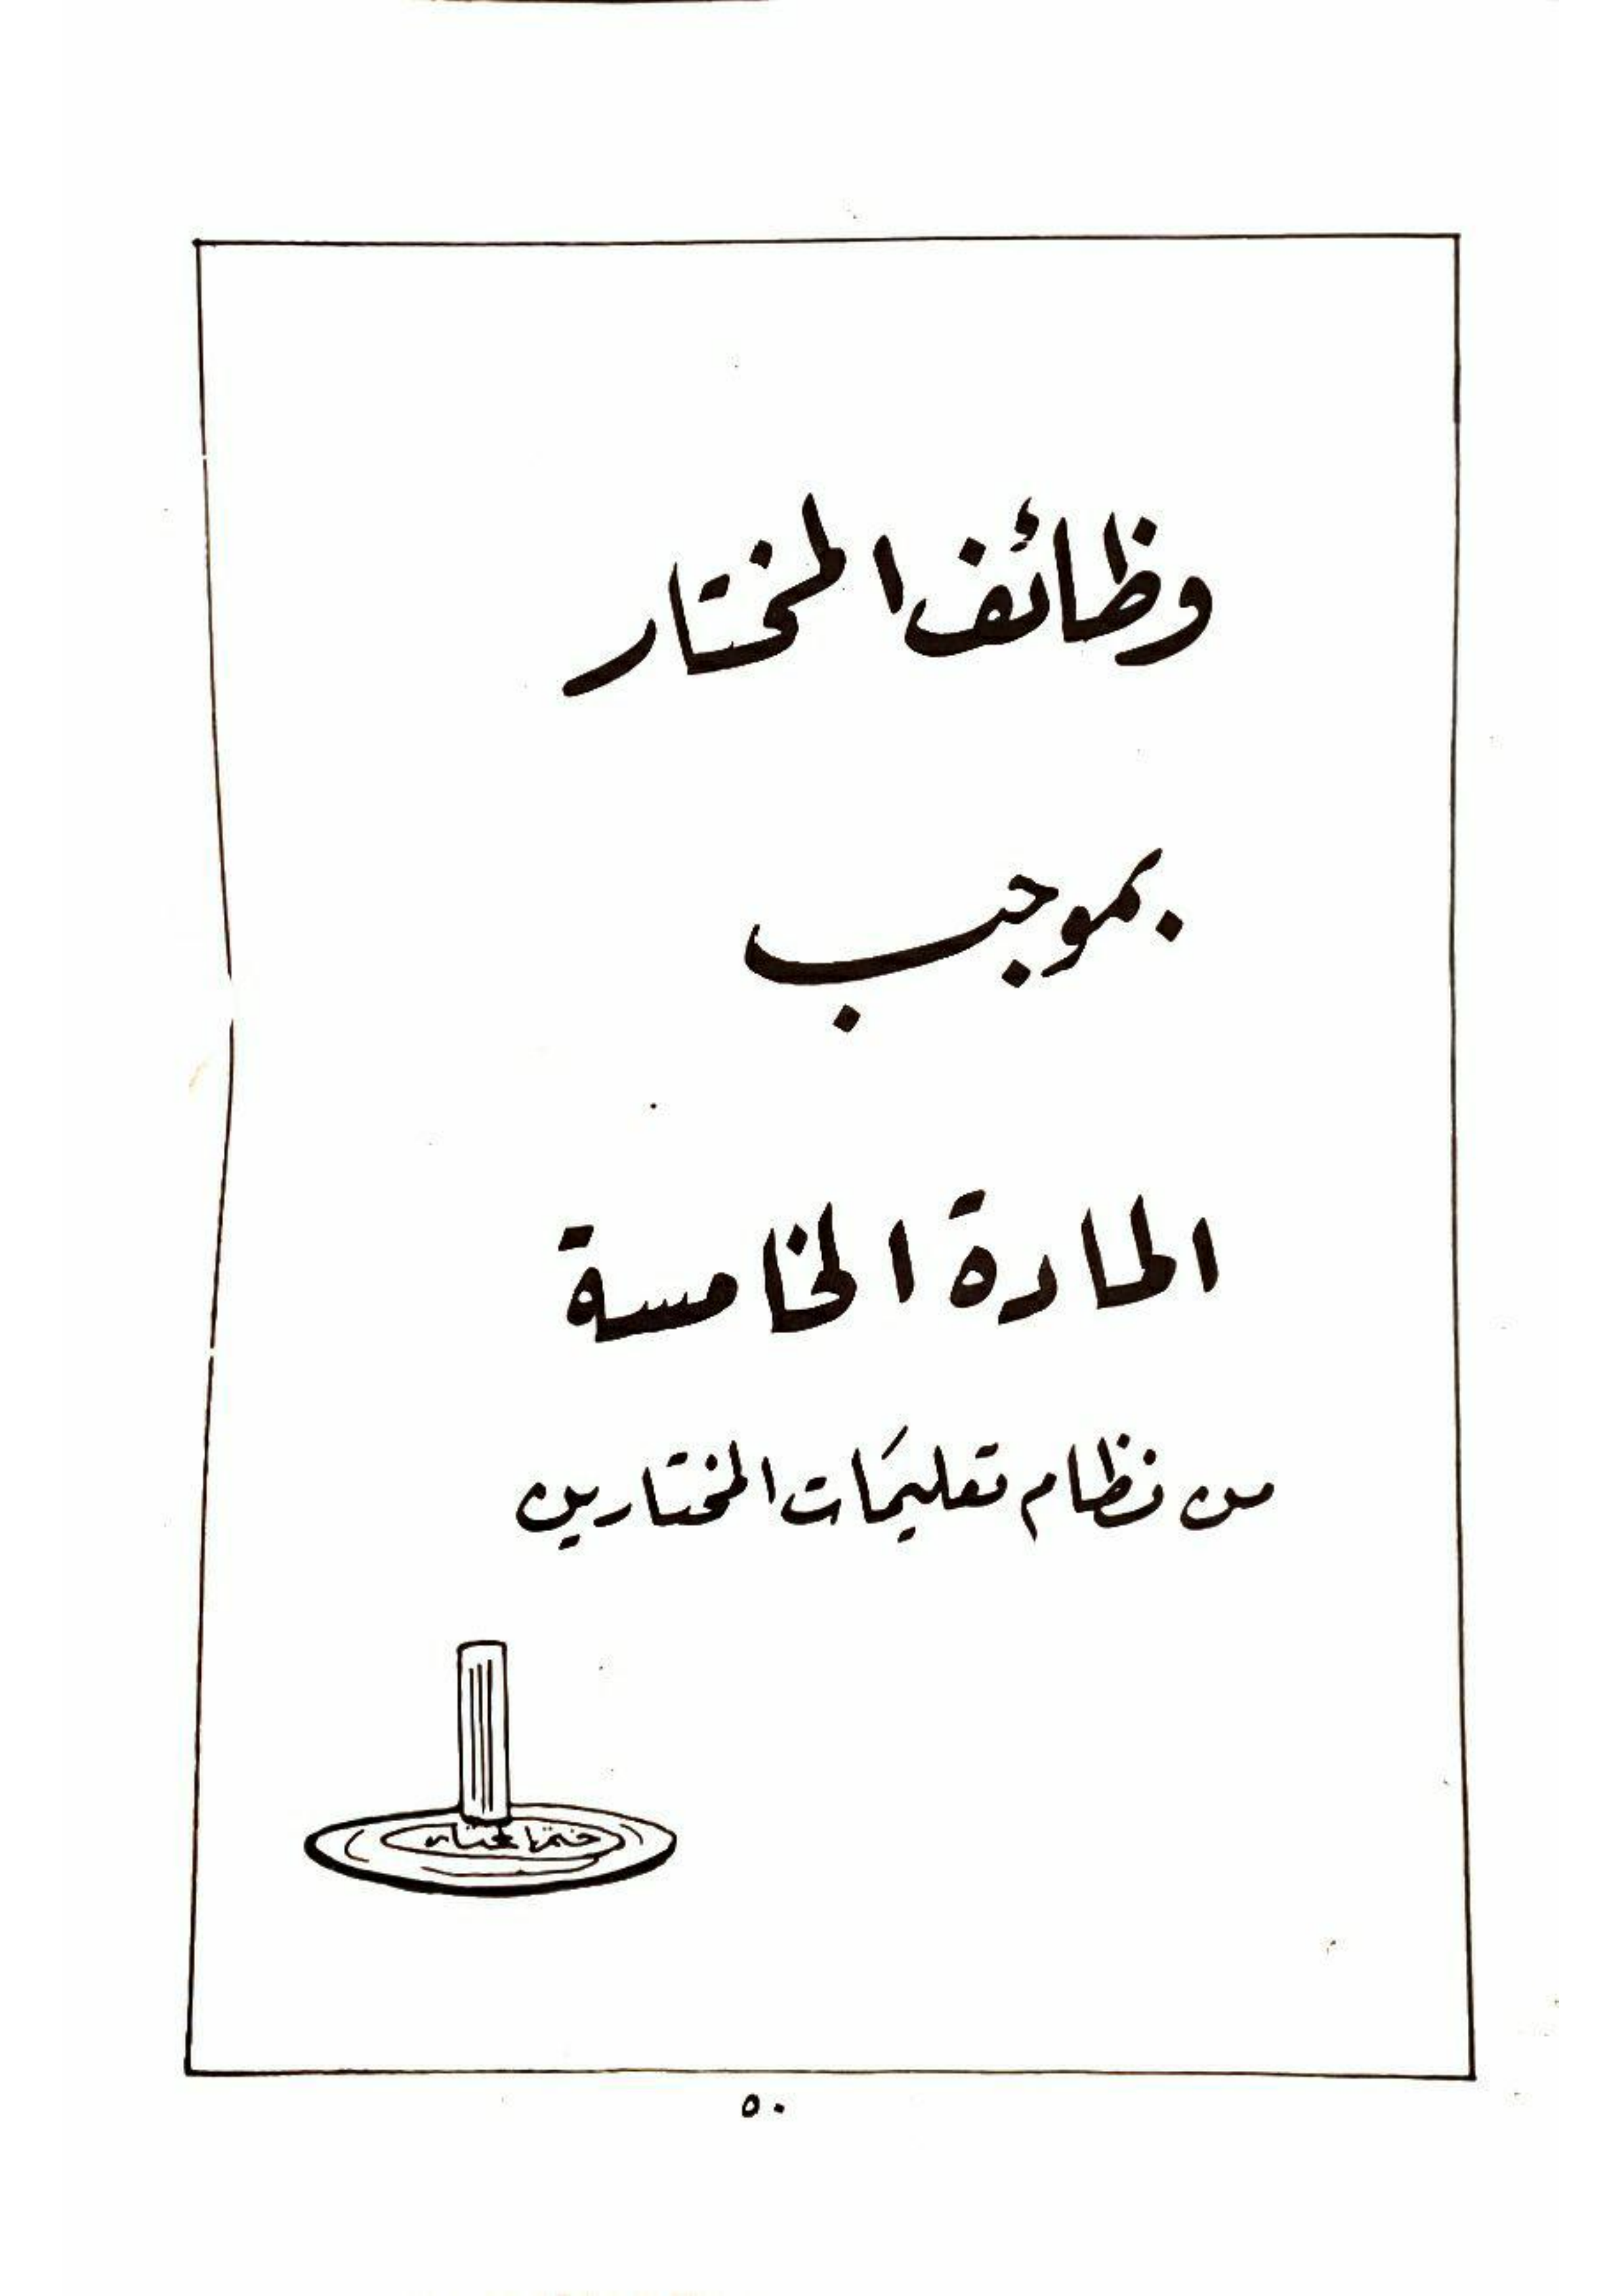 وظائف المختار
بموجب
المادة الخامسة
من نظام تعليمَات المختارين
ختم المختار
٥٠